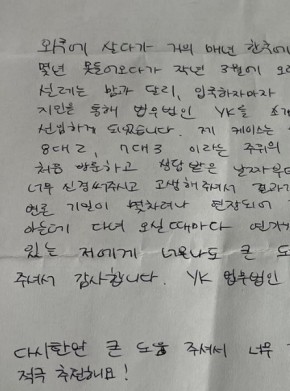 외국에 살다가 거의 매년 한국에
몇년 못들어오다가 작년 3월에 오
설레는 맘과 달리, 입국하자마자
지인을 통해 법무법인 YK를 소개
선임하게 되었습니다. 제 케이스는
8대 2, 7대 3 이라는 주위의
처음 방문하고 상담 받은 날자부터
너무 신경써주시고 고생해주셔서 결과가
변론 기일이 몇차례나 연장되어
아는데 다녀 오실 때마다 연락
있는 저에게 너무나도 큰 도
주셔서 감사합니다. YK 법무법인
다시한번 큰 도움 주셔서 너무
적극 추천해요!